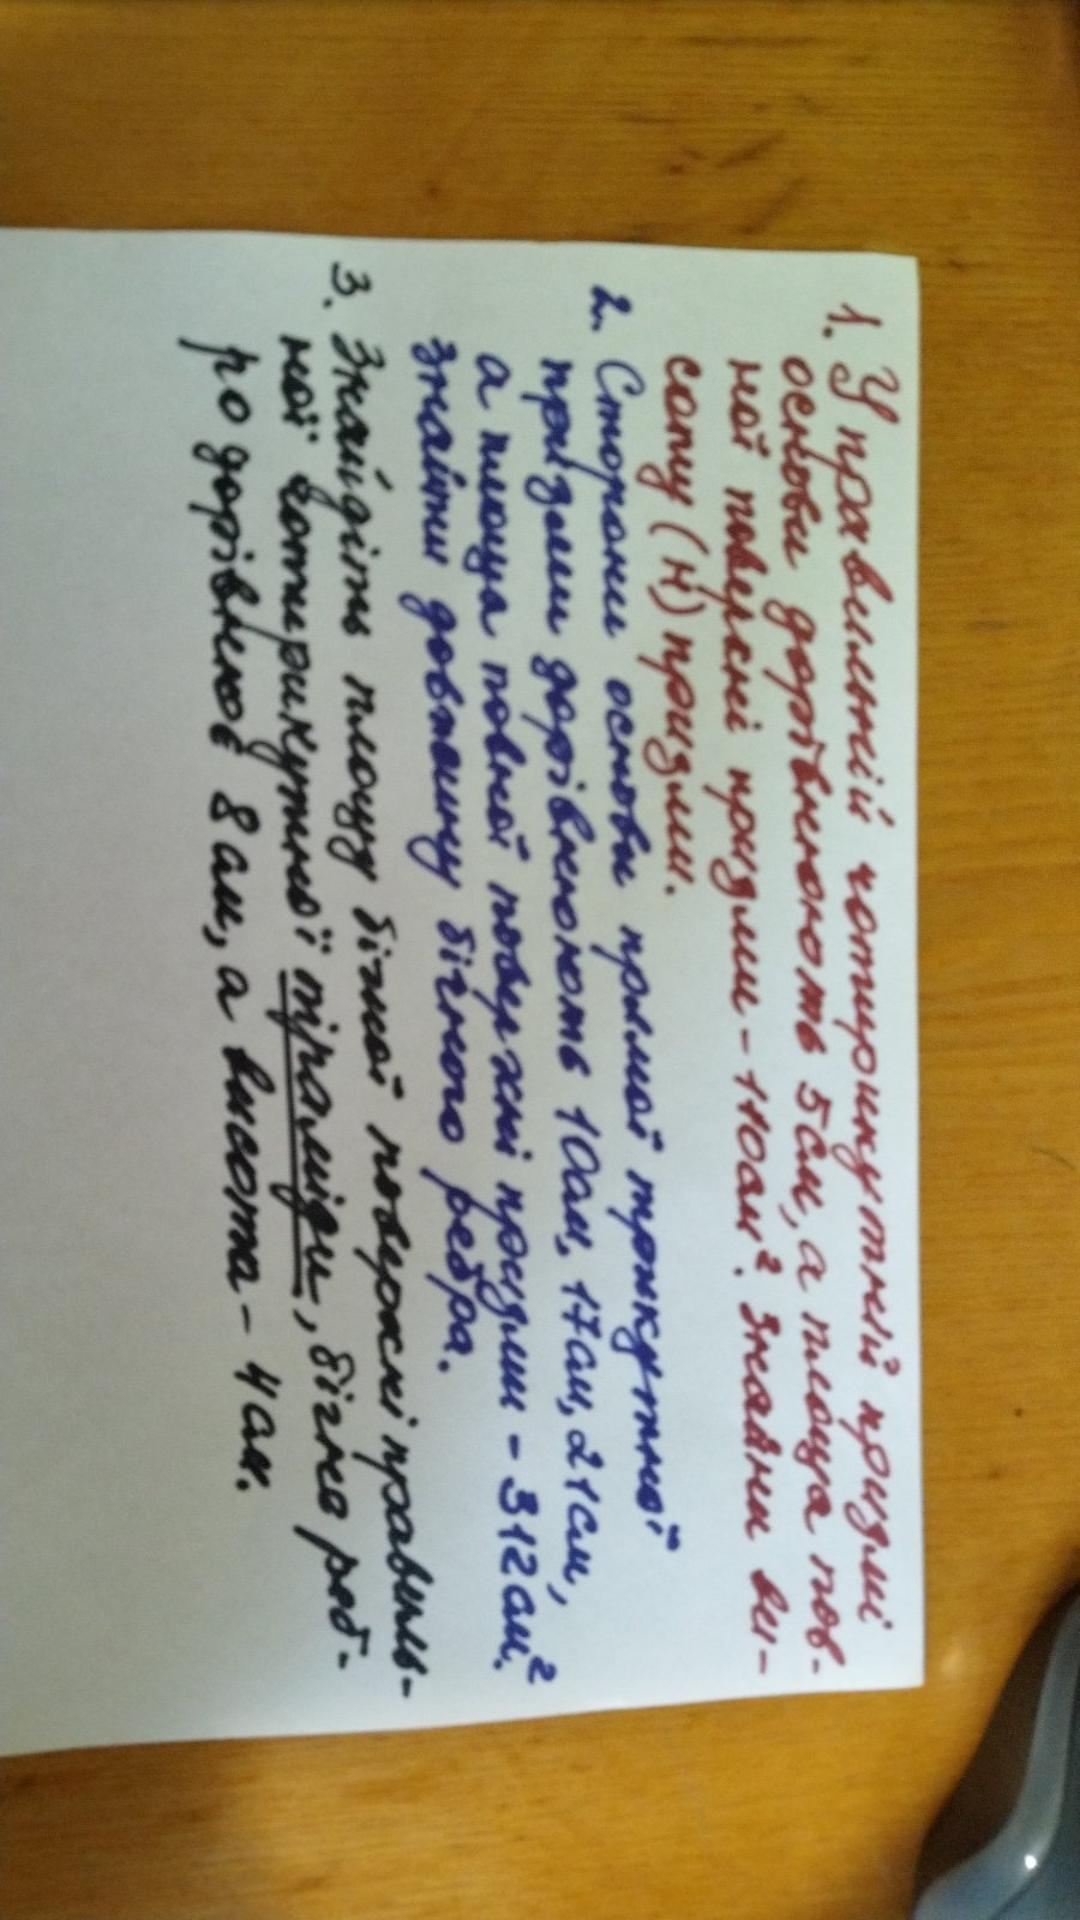 1. У правильній чотирикутній призмі
основи дорівнюють 5см, а площа пов-
ної поверхні призми - 110см². Знайти ви-
соту (H) призми.
2. Сторони основи прямої трикутної
призми дорівнюють 10см, 17см, 21см,
а площа повної поверхні призми - 312см².
Знайти довжину бічного ребра.
3. Знайдіть площу бічної поверхні правиль-
ної чотирикутної піраміди, бічне реб-
ро дорівнює 8 см, а висота - 4 см.